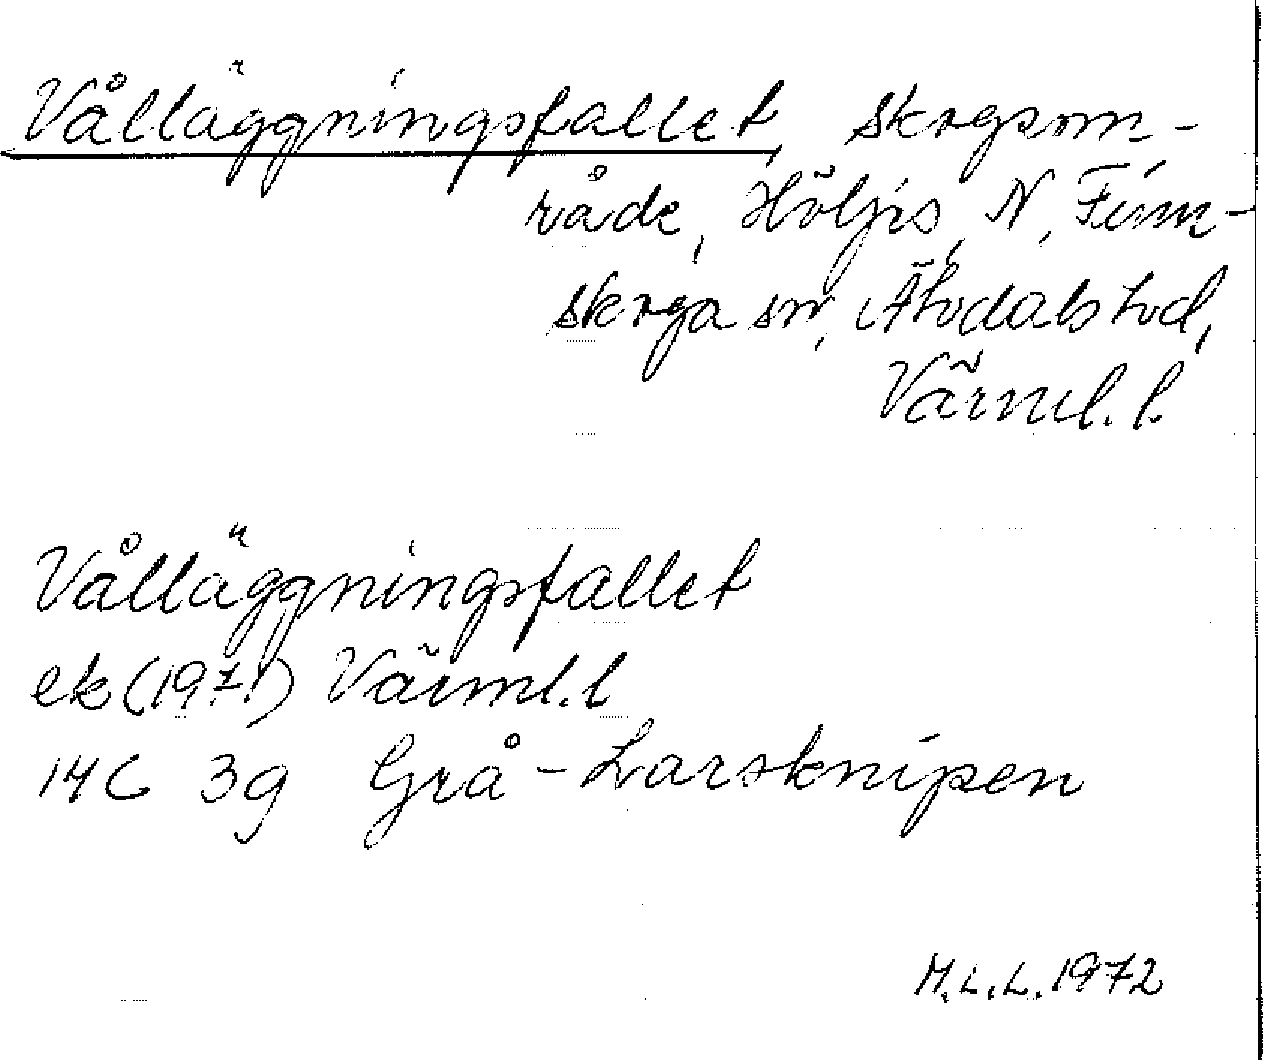 Vålläggningsfallet, skogsom-
råde, Höljis, N. Finn-
skoga sn, Älvdals hvd,
Värml. l.
Vålläggningsfallet
ek (1971) Värml. l
14C 3g Grå-Larsknipen
M.L.L. 1972